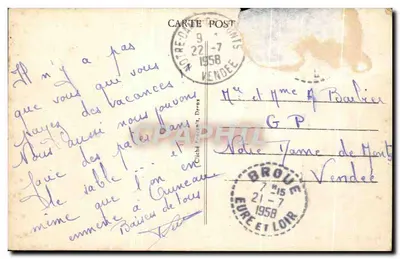 CARTE POST
NOTRE-DAME MONTS
9
22-7
1958
VENDEE
Il n'y a pas
que vous qui vous
payez des vacances
Nous aussi nous pouvons
faire des pâtés dans
le sable ... et
même que l'on en
emmène à
Baisers de tous
Mr et Mme A Barbier
G P
Notre Dame de Monts
Vendée
BROUE
7 H15
21-7
1958
EURE ET LOIR